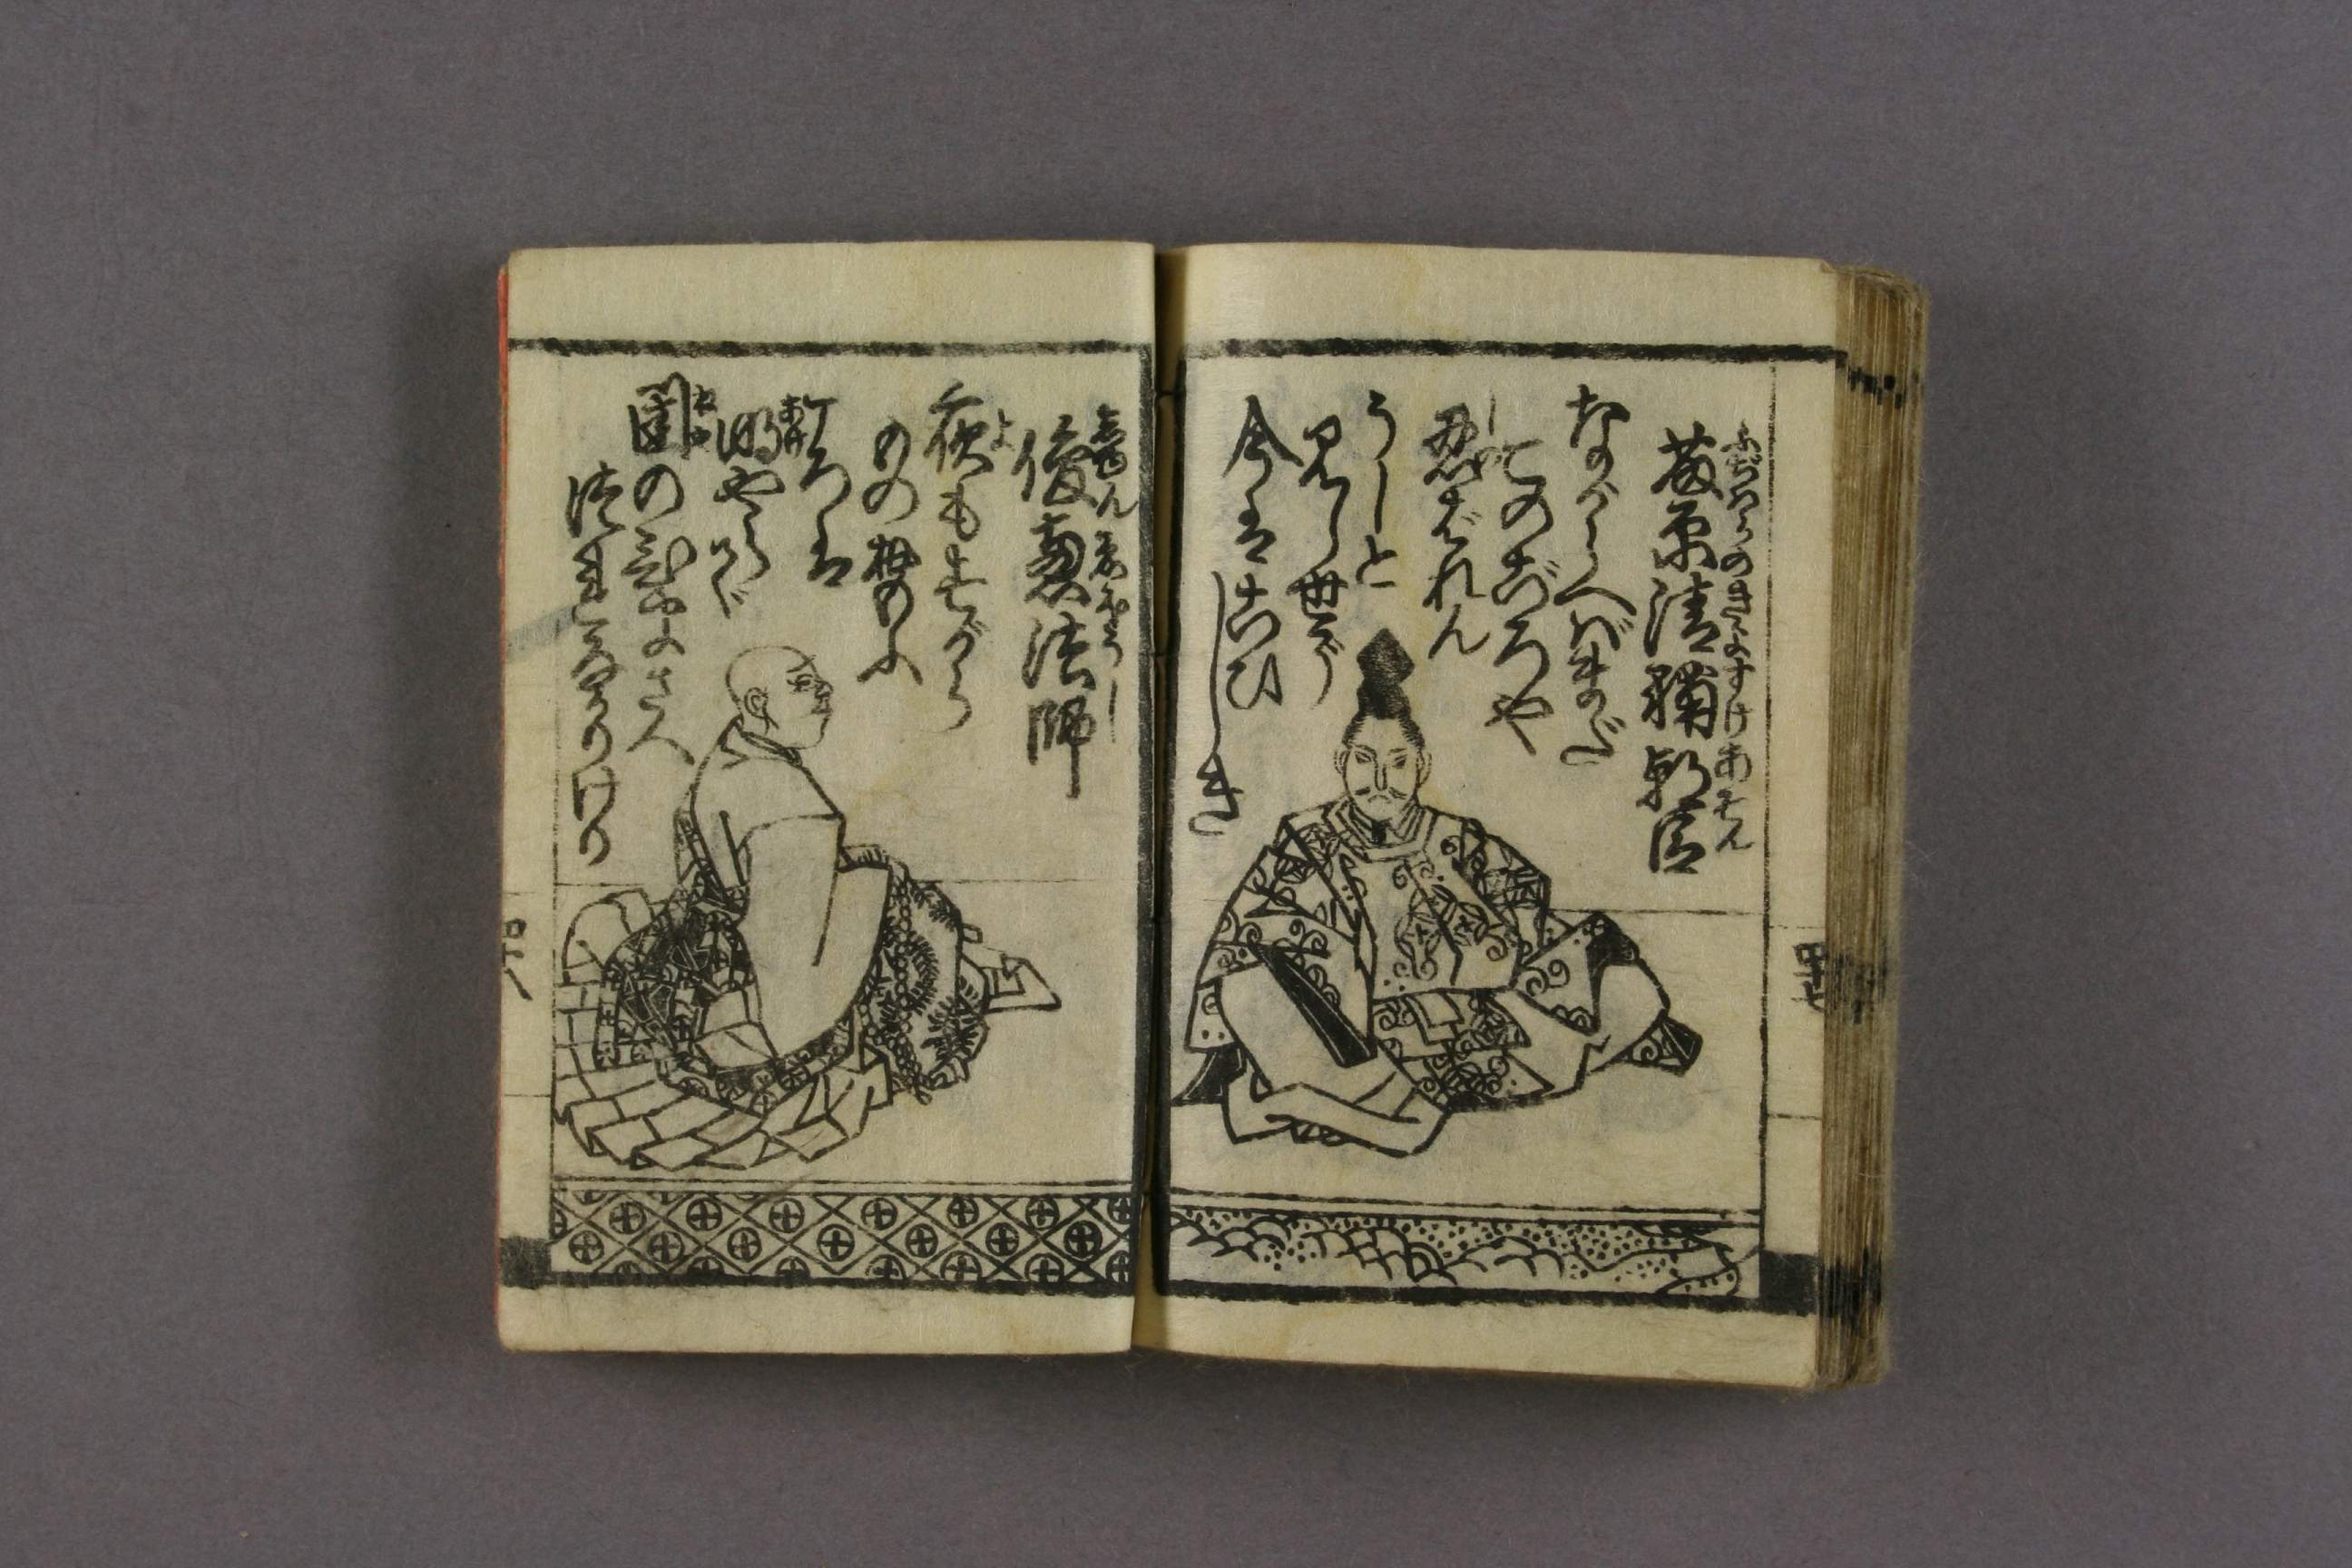 ふぢはらのきよすけあそん
藤原清輔朝臣
ながらへばまだ
このごろや
しの
忍ばれん
うしと
見し世ぞ
今はこひ
しき
しゆんゑほうし
俊惠法師
よ
夜もすがら
もの思ふ
頃は
明やらで
ねや
閨のひまさへ
つれなかりけり